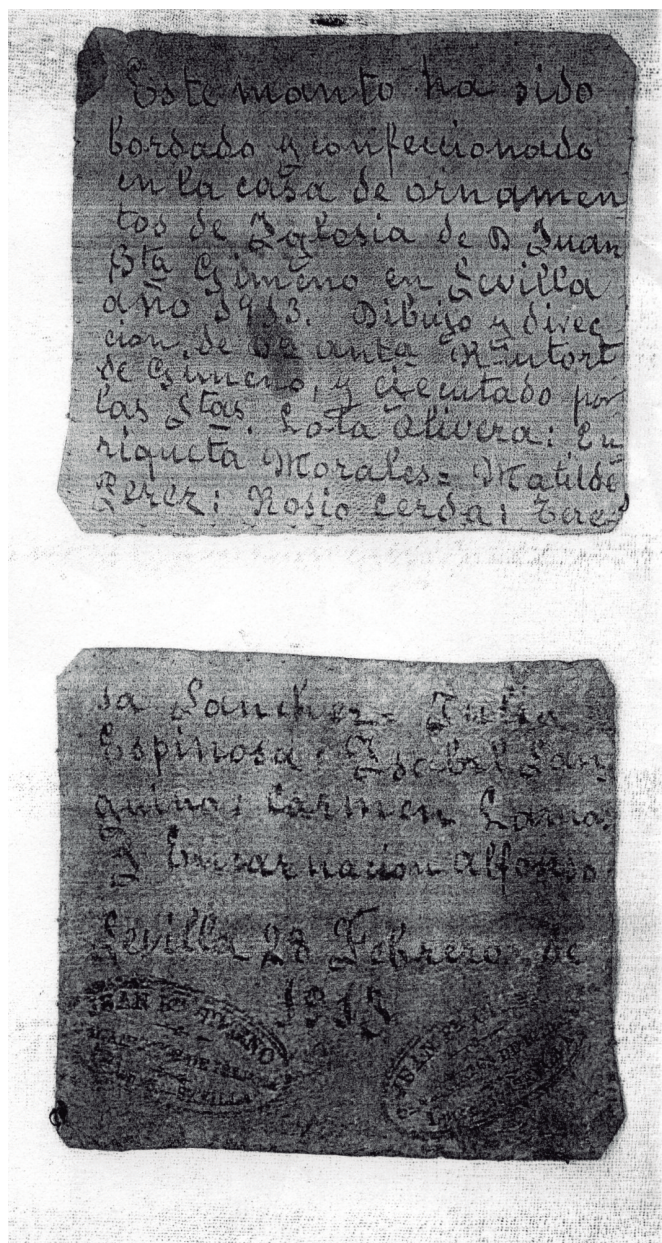 Este manto ha sido
bordado y confeccionado
en la casa de ornamen
tos de Iglesia de D Juan
Bta Gimeno en Sevilla
año 1913. Dibujo y direc
cion, de anta Rintort
de Gimeno, y ejecutado por
las Stas. Lola Olivera: En
riqueta Morales= Matilde
Perez: Rosio Cerda: Tere-
sa Sanchez= Julia
Espinosa: Isabel San
guino: Carmen Lama.
I Encarnacion Alfonso
Sevilla 28 Febrero de
1913
JUAN
SEVILLA
JUAN